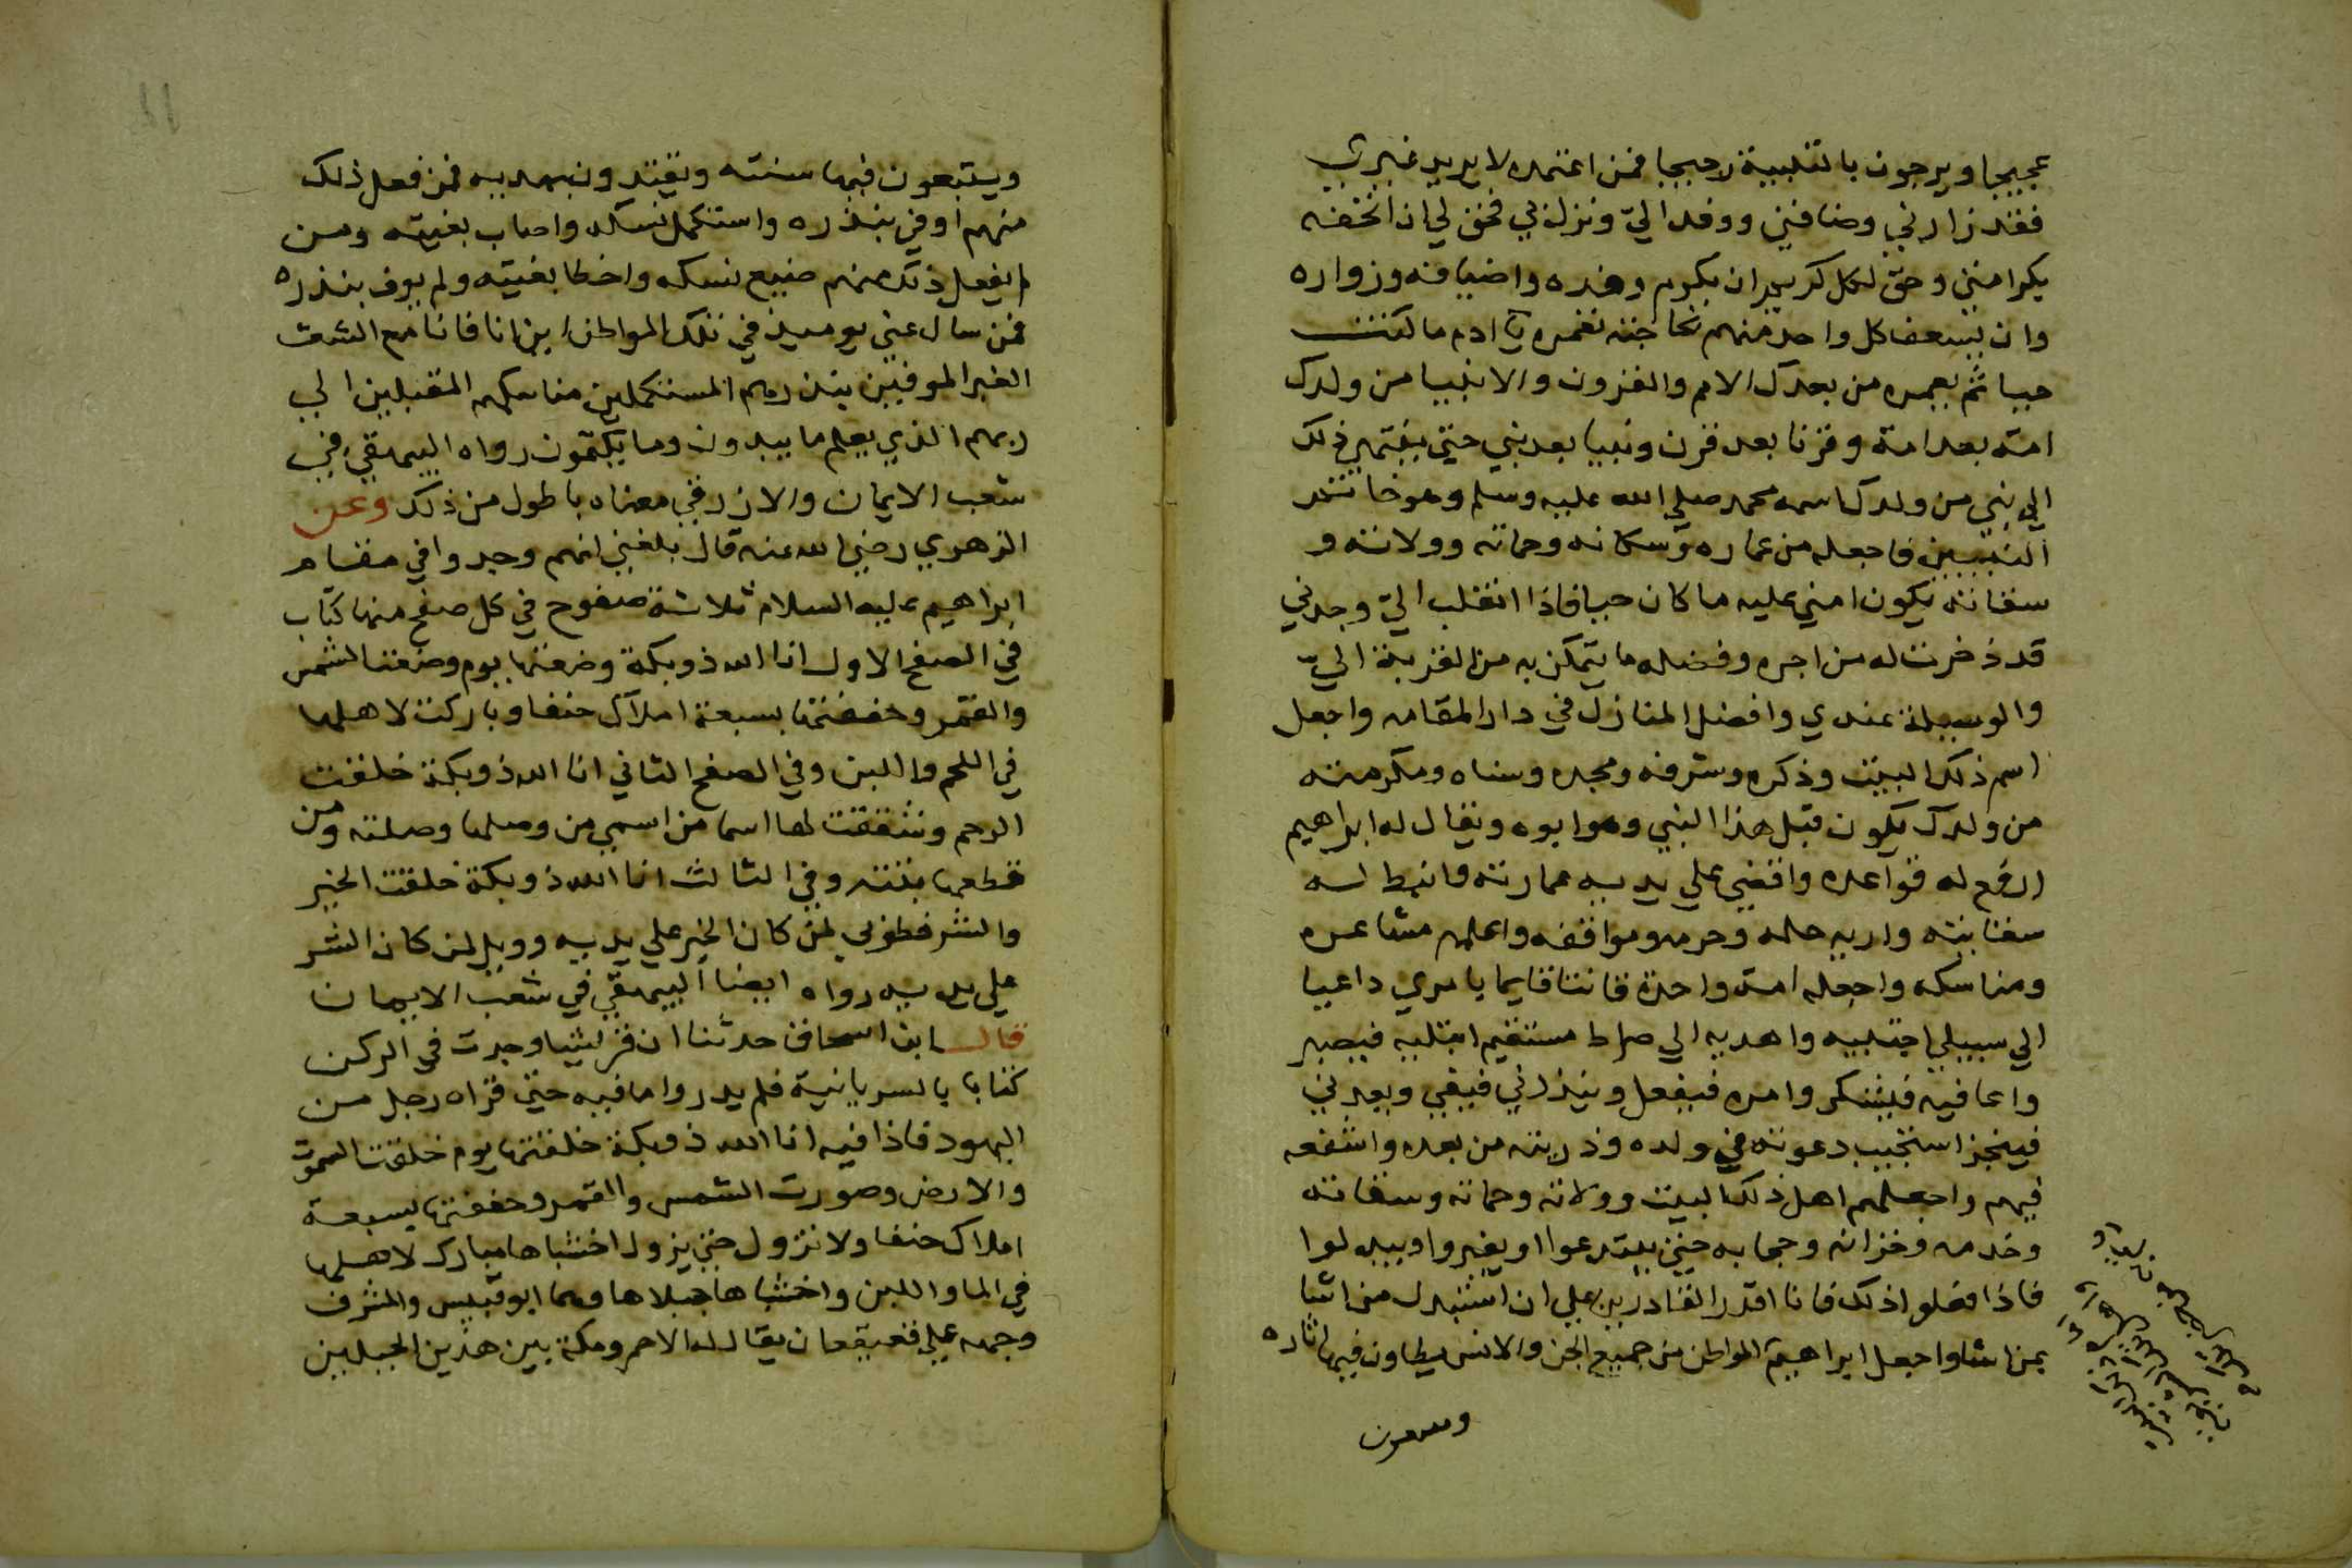 عجيجا ويرجون بالتلبية رجيجا فمن اعتمره لا يريد غيري
فقد زارني وضافني ووفد الي ونزل بي فحق لي ان اتحفه
بكرامتي وحق لكل كريم ان يكرم وفده واضيافه وزواره
وان يسعف كل واحد منهم بحاجته تعمره يا ادم ما كنت
حيا ثم يعمره من بعدك الامم والقرون والانبيا من ولدك
امة بعد امة وقرنا بعد قرن ونبيا بعد نبي حتى ينتهي ذلك
الي نبي من ولدك اسمه محمد صلي الله عليه وسلم وهو خاتم
النبيين فاجعله من عماره وسكانه وحماته وولاته و
سقاته يكون اميني عليه ما كان حيا فاذا انقلب الي وجدني
قد ذخرت له من اجره وفضله ما يتمكن به من القربة الي
والوسيلة عندي وافضل المنازل في دار المقامه واجعل
اسم ذلك البيت وذكره وشرفه ومجده وسناه ومكرمته
من ولدك يكون قبل هذا النبي وهو ابوه ويقال له ابراهيم
ارفع له قواعده واقضي علي يديه عمارته وانبط له
سقايته واريه حله وحرمه ومواقفه واعلمه مشاعره
ومناسكه واجعله امة واحدة قانتا قايما بامري داعيا
الي سبيلي اجتبيه واهديه الي صراط مستقيم ابتليه فيصبر
واعافيه فيشكر وامره فيفعل وينذر لي فيفي ويعدني
فينجز استجيب دعوته في ولده وذريته من بعده واشفعه
فيهم واجعلهم اهل ذلك البيت وولاته وحماته وسقاته
وخدمه وخزانه وحجابه حتى يبتدعوا او يغيروا ويبدلوا
فاذا فعلوا ذلك فانا اقدر القادرين علي ان استبدل من اشا
بمن اشا واجعل ابراهيم المواطن من جميع الجن والانس يطاون فيها اثاره
ويتبعون فيها سنته ويقتدون بهديه فمن فعل ذلك
منهم اوفي بنذره واستكمل نسكه واصاب بغيته ومن
لم يفعل ذلك منهم ضيع نسكه واخطا بغيته ولم يوف بنذره
فمن سال عني يوميذ في تلك المواطن اين انا فانا مع الشعث
الغبر الموفيين بنذرهم المستكملين مناسكهم المقبلين الي
ربهم الذي يعلم ما يبدون وما يكتمون رواه البيهقي في
شعب الايمان والازرقي معناه باطول من ذلك وعن
الزهري رضي الله عنه قال بلغني انهم وجدوا في مقام
ابراهيم عليه السلام ثلاثة صفوح في كل صفح منها كتاب
في الصفح الاول انا الله ذو بكة وضعتها يوم وضعت الشمس
والقمر وحففتها بسبعة املاك حنفا وباركت لاهلها
في اللحم واللبن وفي الصفح الثاني انا الله ذو بكة خلقت
الرحم وشققت لها اسما من اسمي من وصلها وصلته ومن
قطعها بتته وفي الثالث انا الله ذو بكة خلقت الخير
والشر فطوبي لمن كان الخير علي يديه وويل لمن كان الشر
علي يديه رواه ايضا البيهقي في شعب الايمان
قال ابن اسحاق حدثنا ان قريشا وجدت في الركن
كتابا بالسريانية فلم يدروا ما فيه حتى قراه رجل من
اليهود فاذا فيه انا الله ذو بكة خلقتها يوم خلقت السموت
والارض وصورت الشمس والقمر وحففتها بسبعة
املاك حنفا ولا تزول حتى يزول اخشباها مبارك لاهلها
في الما واللبن واخشباها جبلاها وهما ابو قبيس والمشرف
وجهه علي قعيقعان يقال له الاحمر ومكة بين هذين الجبلين